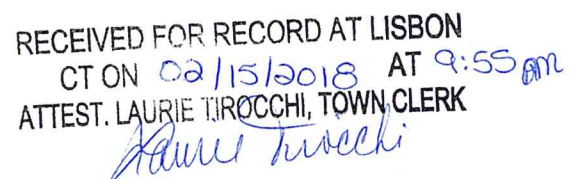 RECEIVED FOR RECORD AT LISBON
CT ON 02/15/2018 AT 9:55 am
ATTEST. LAURIE TIROCCHI, TOWN CLERK
Laurie Tirocchi